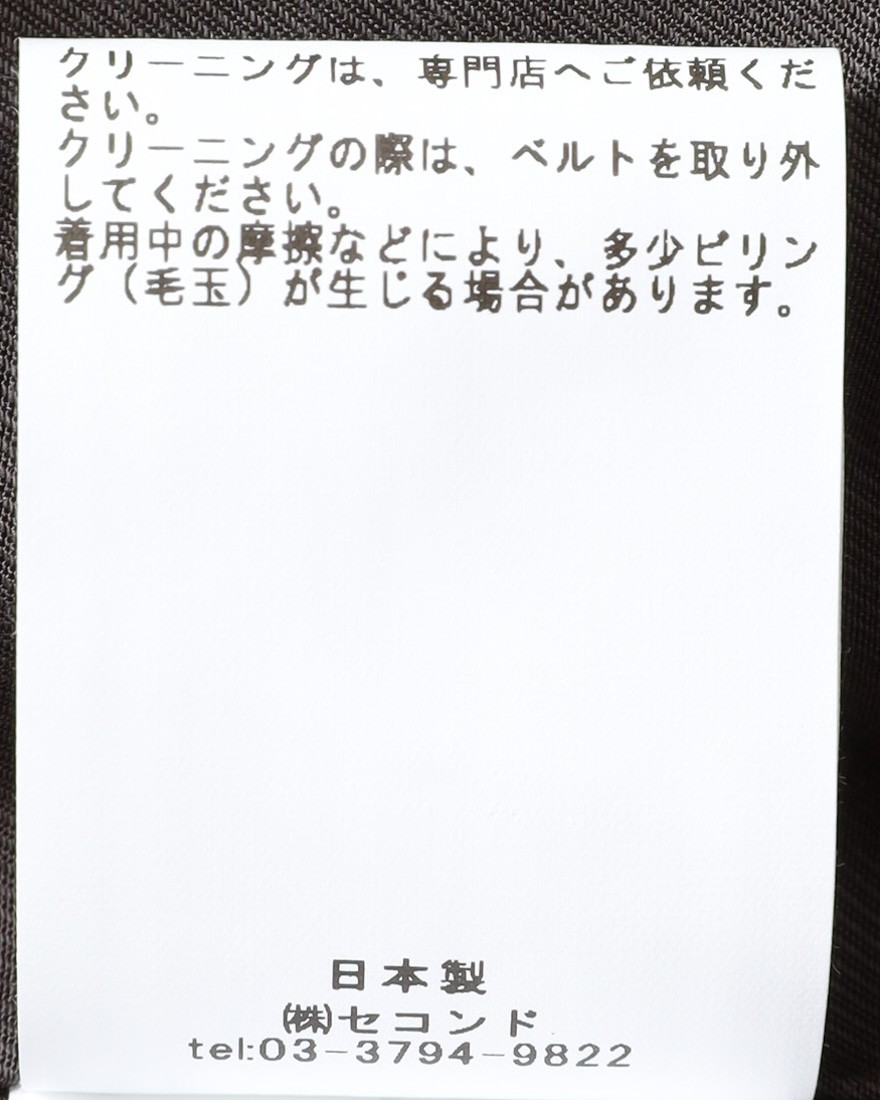 クリーニングは、専門店へご依頼くだ
さい。
クリーニングの際は、ベルトを取り外
してください。
着用中の摩擦などにより、多少ピリン
グ（毛玉）が生じる場合があります。
日本製
㈱セコンド
tel:03-3794-9822